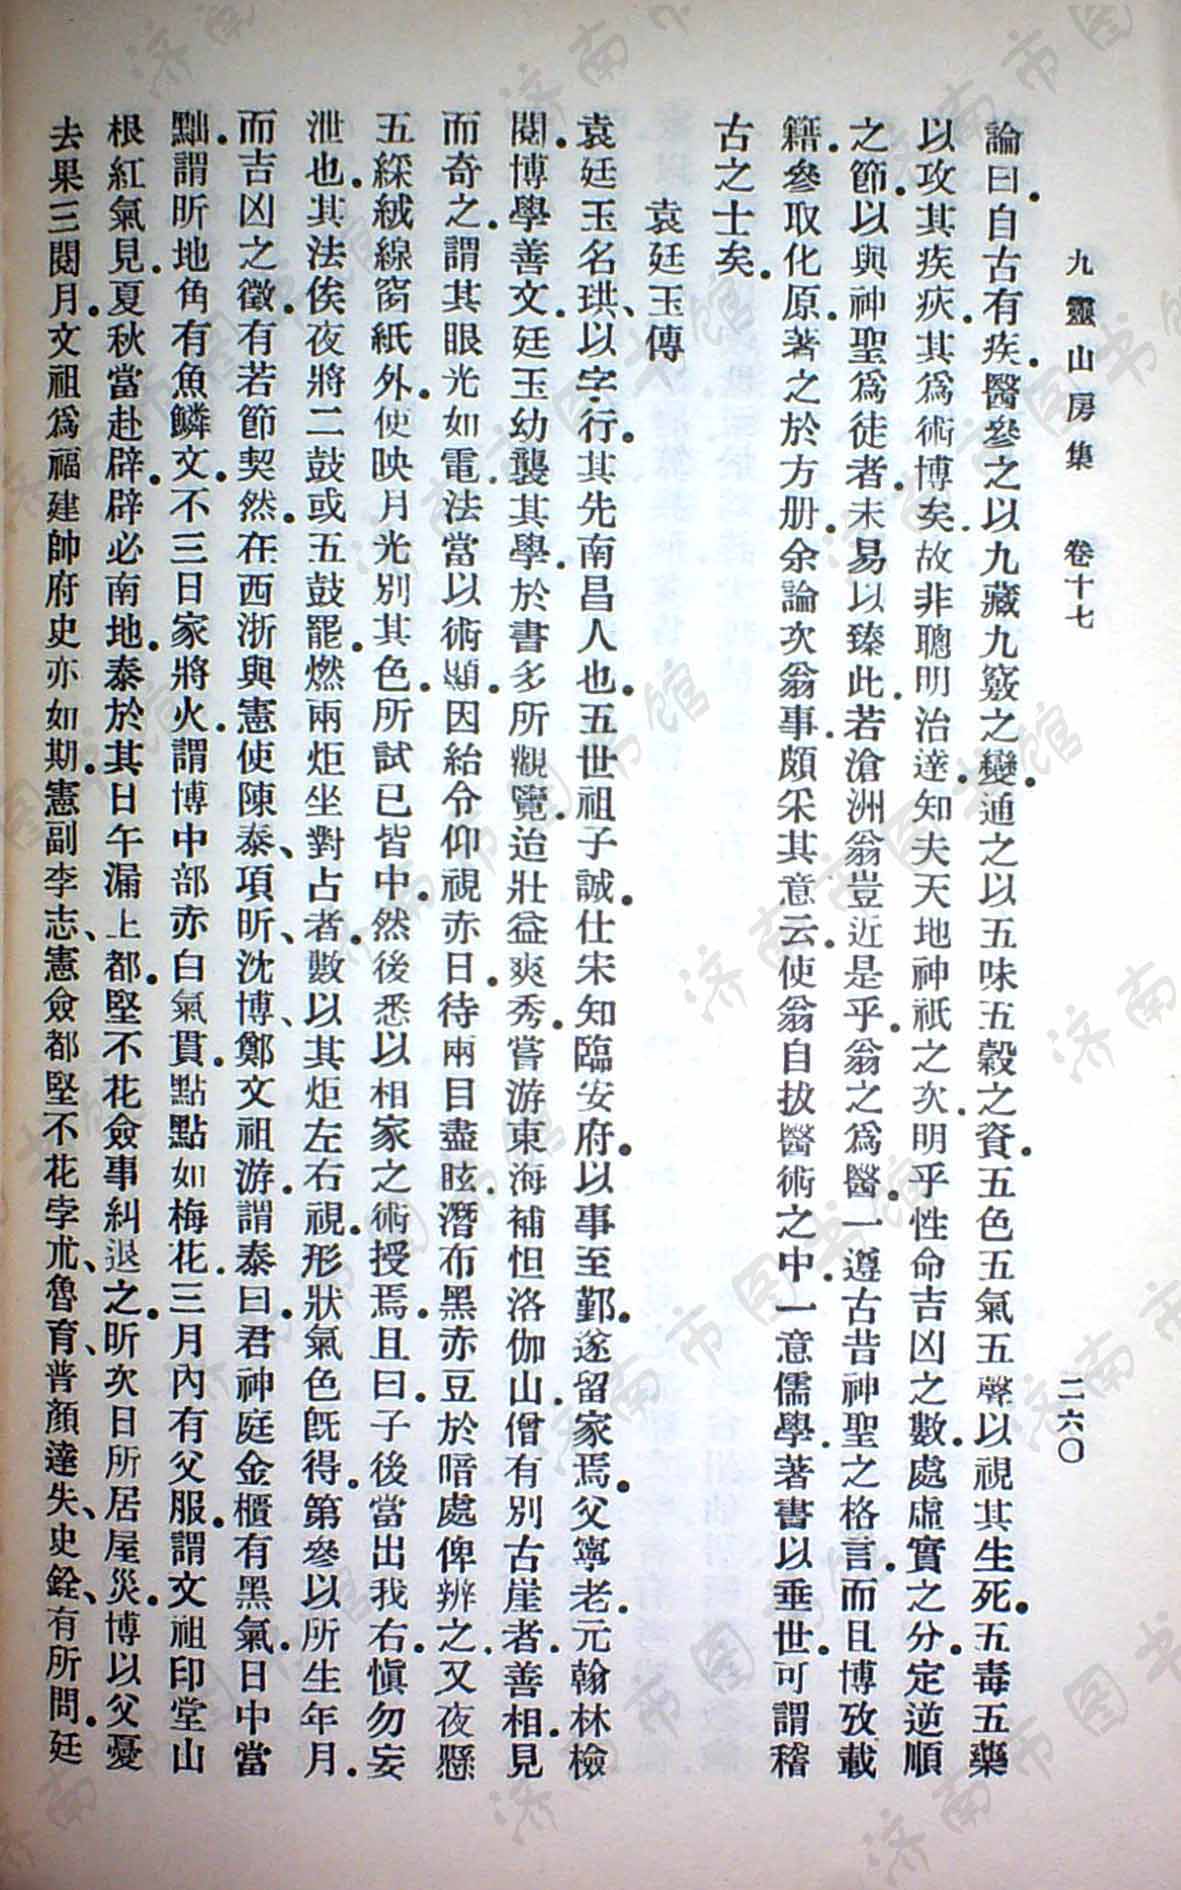 九靈山房集　卷十七　二六〇
論曰。自古有疾。醫參之以九藏九竅之變。通之以五味五穀之資。五色五氣五聲以視其生死。五毒五藥
以攻其疾疢。其爲術博矣。故非聰明治達。知夫天地神祇之次。明乎性命吉凶之數。處虛實之分。定逆順
之節。以與神聖爲徒者。未易以臻此。若滄洲翁豈近是乎。翁之爲醫。一遵古昔神聖之格言。而且博攷載
籍。參取化原。著之於方册。余論次翁事。頗采其意云。使翁自拔醫術之中。一意儒學。著書以垂世。可謂稽
古之士矣。
袁廷玉傳
袁廷玉名珙、以字行。其先南昌人也。五世祖子誠。仕宋知臨安府。以事至鄞。遂留家焉。父寧老。元翰林檢
閱。博學善文。廷玉幼襲其學。於書多所觀覽。迨壯益爽秀。嘗游東海補怛洛伽山。僧有別古崖者。善相。見
而奇之。謂其眼光如電。法當以術顯。因紿令仰視赤日。待兩目盡眩。潛布黑赤豆於暗處俾辨之。又夜懸
五綵絨線窗紙外。使映月光別其色。所試已皆中。然後悉以相家之術授焉。且曰。子後當出我右。愼勿妄
泄也。其法俟夜將二鼓或五鼓罷。燃兩炬坐對占者。數以其炬左右視。形狀氣色旣得。第參以所生年月。
而吉凶之徵。有若節契然。在西浙與憲使陳泰、項昕、沈博、鄭文祖游。謂泰曰。君神庭金櫃有黑氣。日中當
黜。謂昕地角有魚鱗文。不三日家將火。謂博中部赤白氣貫。點點如梅花。三月內有父服。謂文祖印堂山
根紅氣見。夏秋當赴辟。辟必南地。泰於其日午漏上都。堅不花僉事糾退之。昕次日所居屋災。博以父憂
去果三閱月。文祖爲福建帥府史亦如期。憲副李志、憲僉都堅不花孛朮、魯育、普顏達失、史銓、有所問。廷